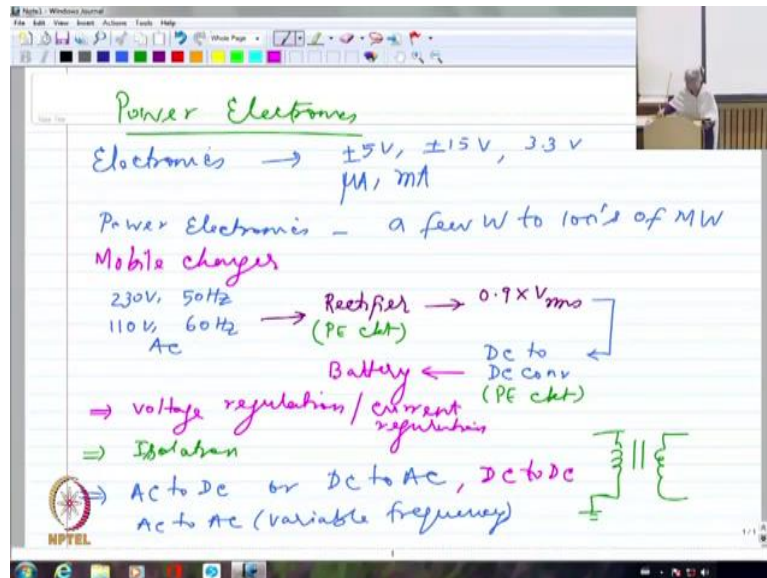 Note1 - Windows Journal
File Edit View Insert Actions Tools Help
Whole Page
Power Electronics
Electronics → ±5V, ±15V, 3.3 V
μA, mA
Power Electronics - a few W to 100's of MW
Mobile charger
230V, 50Hz
110V, 60Hz
AC
→ Rectifier → 0.9 x Vrms
(PE ckt)
Battery ← DC to DC conv
(PE ckt)
⇒ voltage regulation / current regulation
⇒ Isolation
⇒ AC to DC or DC to AC, DC to DC
AC to AC (variable frequency)
NPTEL
1/1